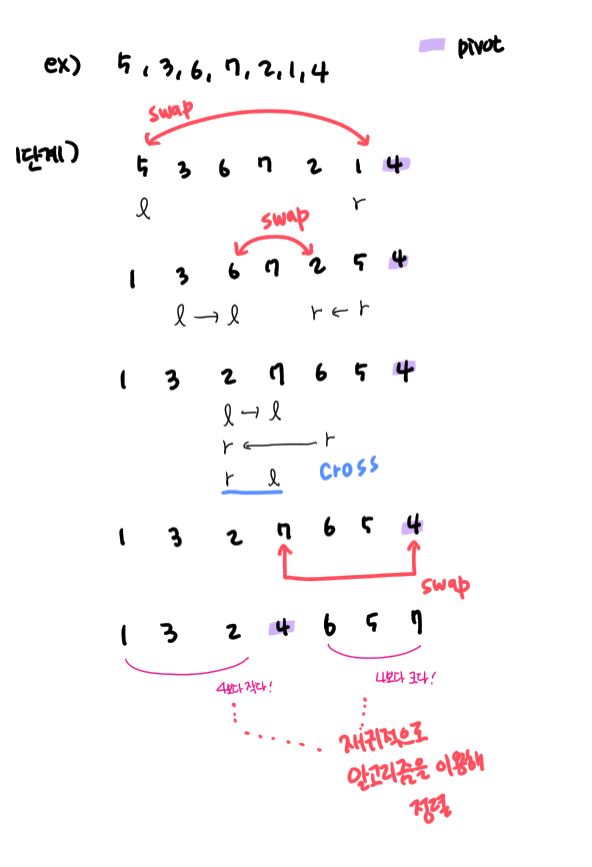 pivot
ex) 5, 3, 6, 7, 2, 1, 4
swap
1단계) 5 3 6 7 2 1 4
l r
swap
1 3 6 7 2 5 4
l → l r ← r
1 3 2 7 6 5 4
l → l
r ← r
r l cross
1 3 2 7 6 5 4
swap
1 3 2 4 6 5 7
4보다 작다! 4보다 크다!
재귀적으로
알고리즘을 이용해
정렬